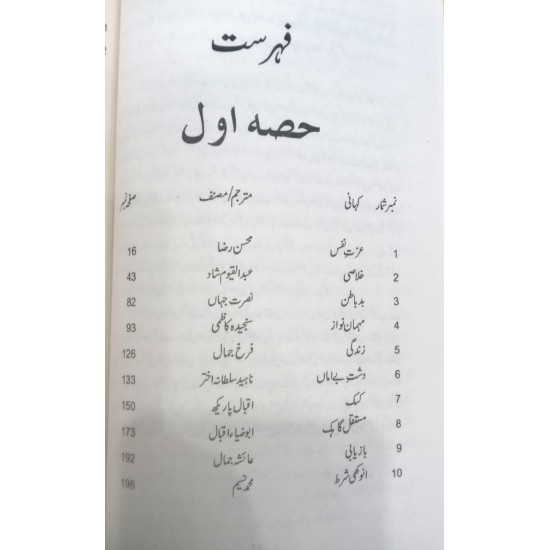 فہرست
حصہ اول
نمبر شمار کہانی مترجم/مصنف صفحہ نمبر
1 عزت نفس محسن رضا 16
2 خلاصی عبدالقیوم شاد 43
3 بدباطن نصرت جہاں 82
4 مہمان نواز سنجیدہ کاظمی 93
5 زندگی فرخ جمال 126
6 دشتِ بے اماں ناہید سلطانہ اختر 133
7 کسک اقبال پاریکھ 150
8 مستقل گاہک ابوضیاء اقبال 173
9 بازیابی عائشہ جمال 192
10 انوکھی شرط محمد نسیم 196